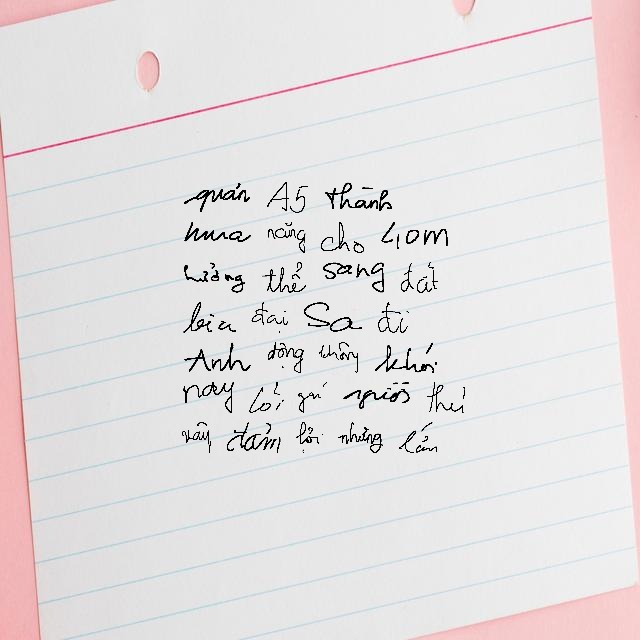 quán A5 thành
mua năng cho 40m
hưởng thể sang đất
bia đại Sa đi
Anh động không khói
nay lối giá người thứ
vây đảm lợi những lần